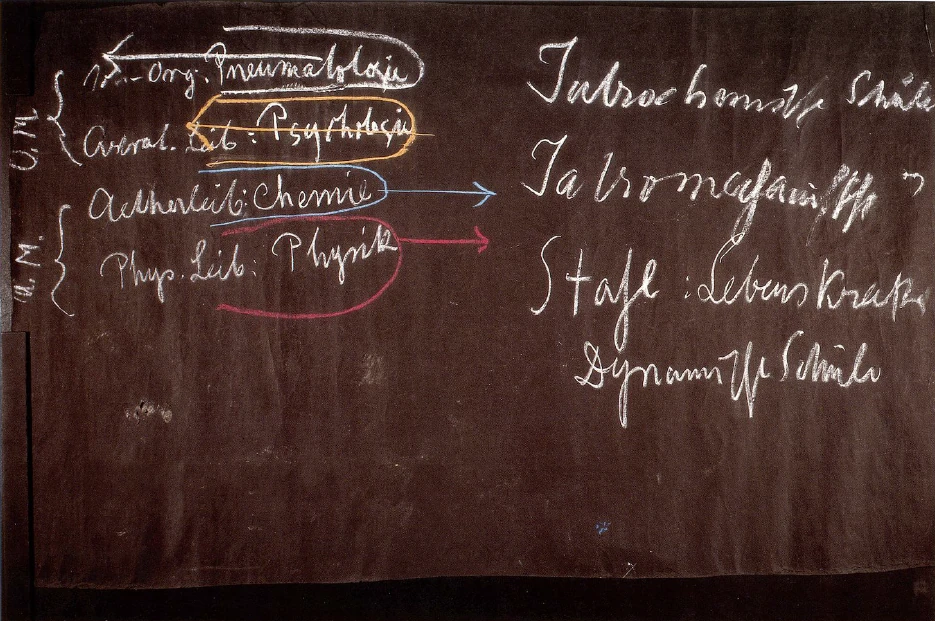 Ich-Org. Pneumatologie
O. M.
Astral. Leib: Psychologie
Aetherleib: Chemie
U. M.
Phys. Leib: Physik
Iatrochemische Schule
Iatromechanische "
Stahl: Lebenskraft
Dynamische Schule